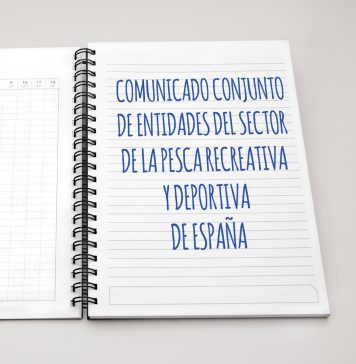 9 10 11 12
COMUNICADO CONJUNTO
DE ENTIDADES DEL SECTOR
DE LA PESCA RECREATIVA
Y DEPORTIVA
DE ESPAÑA